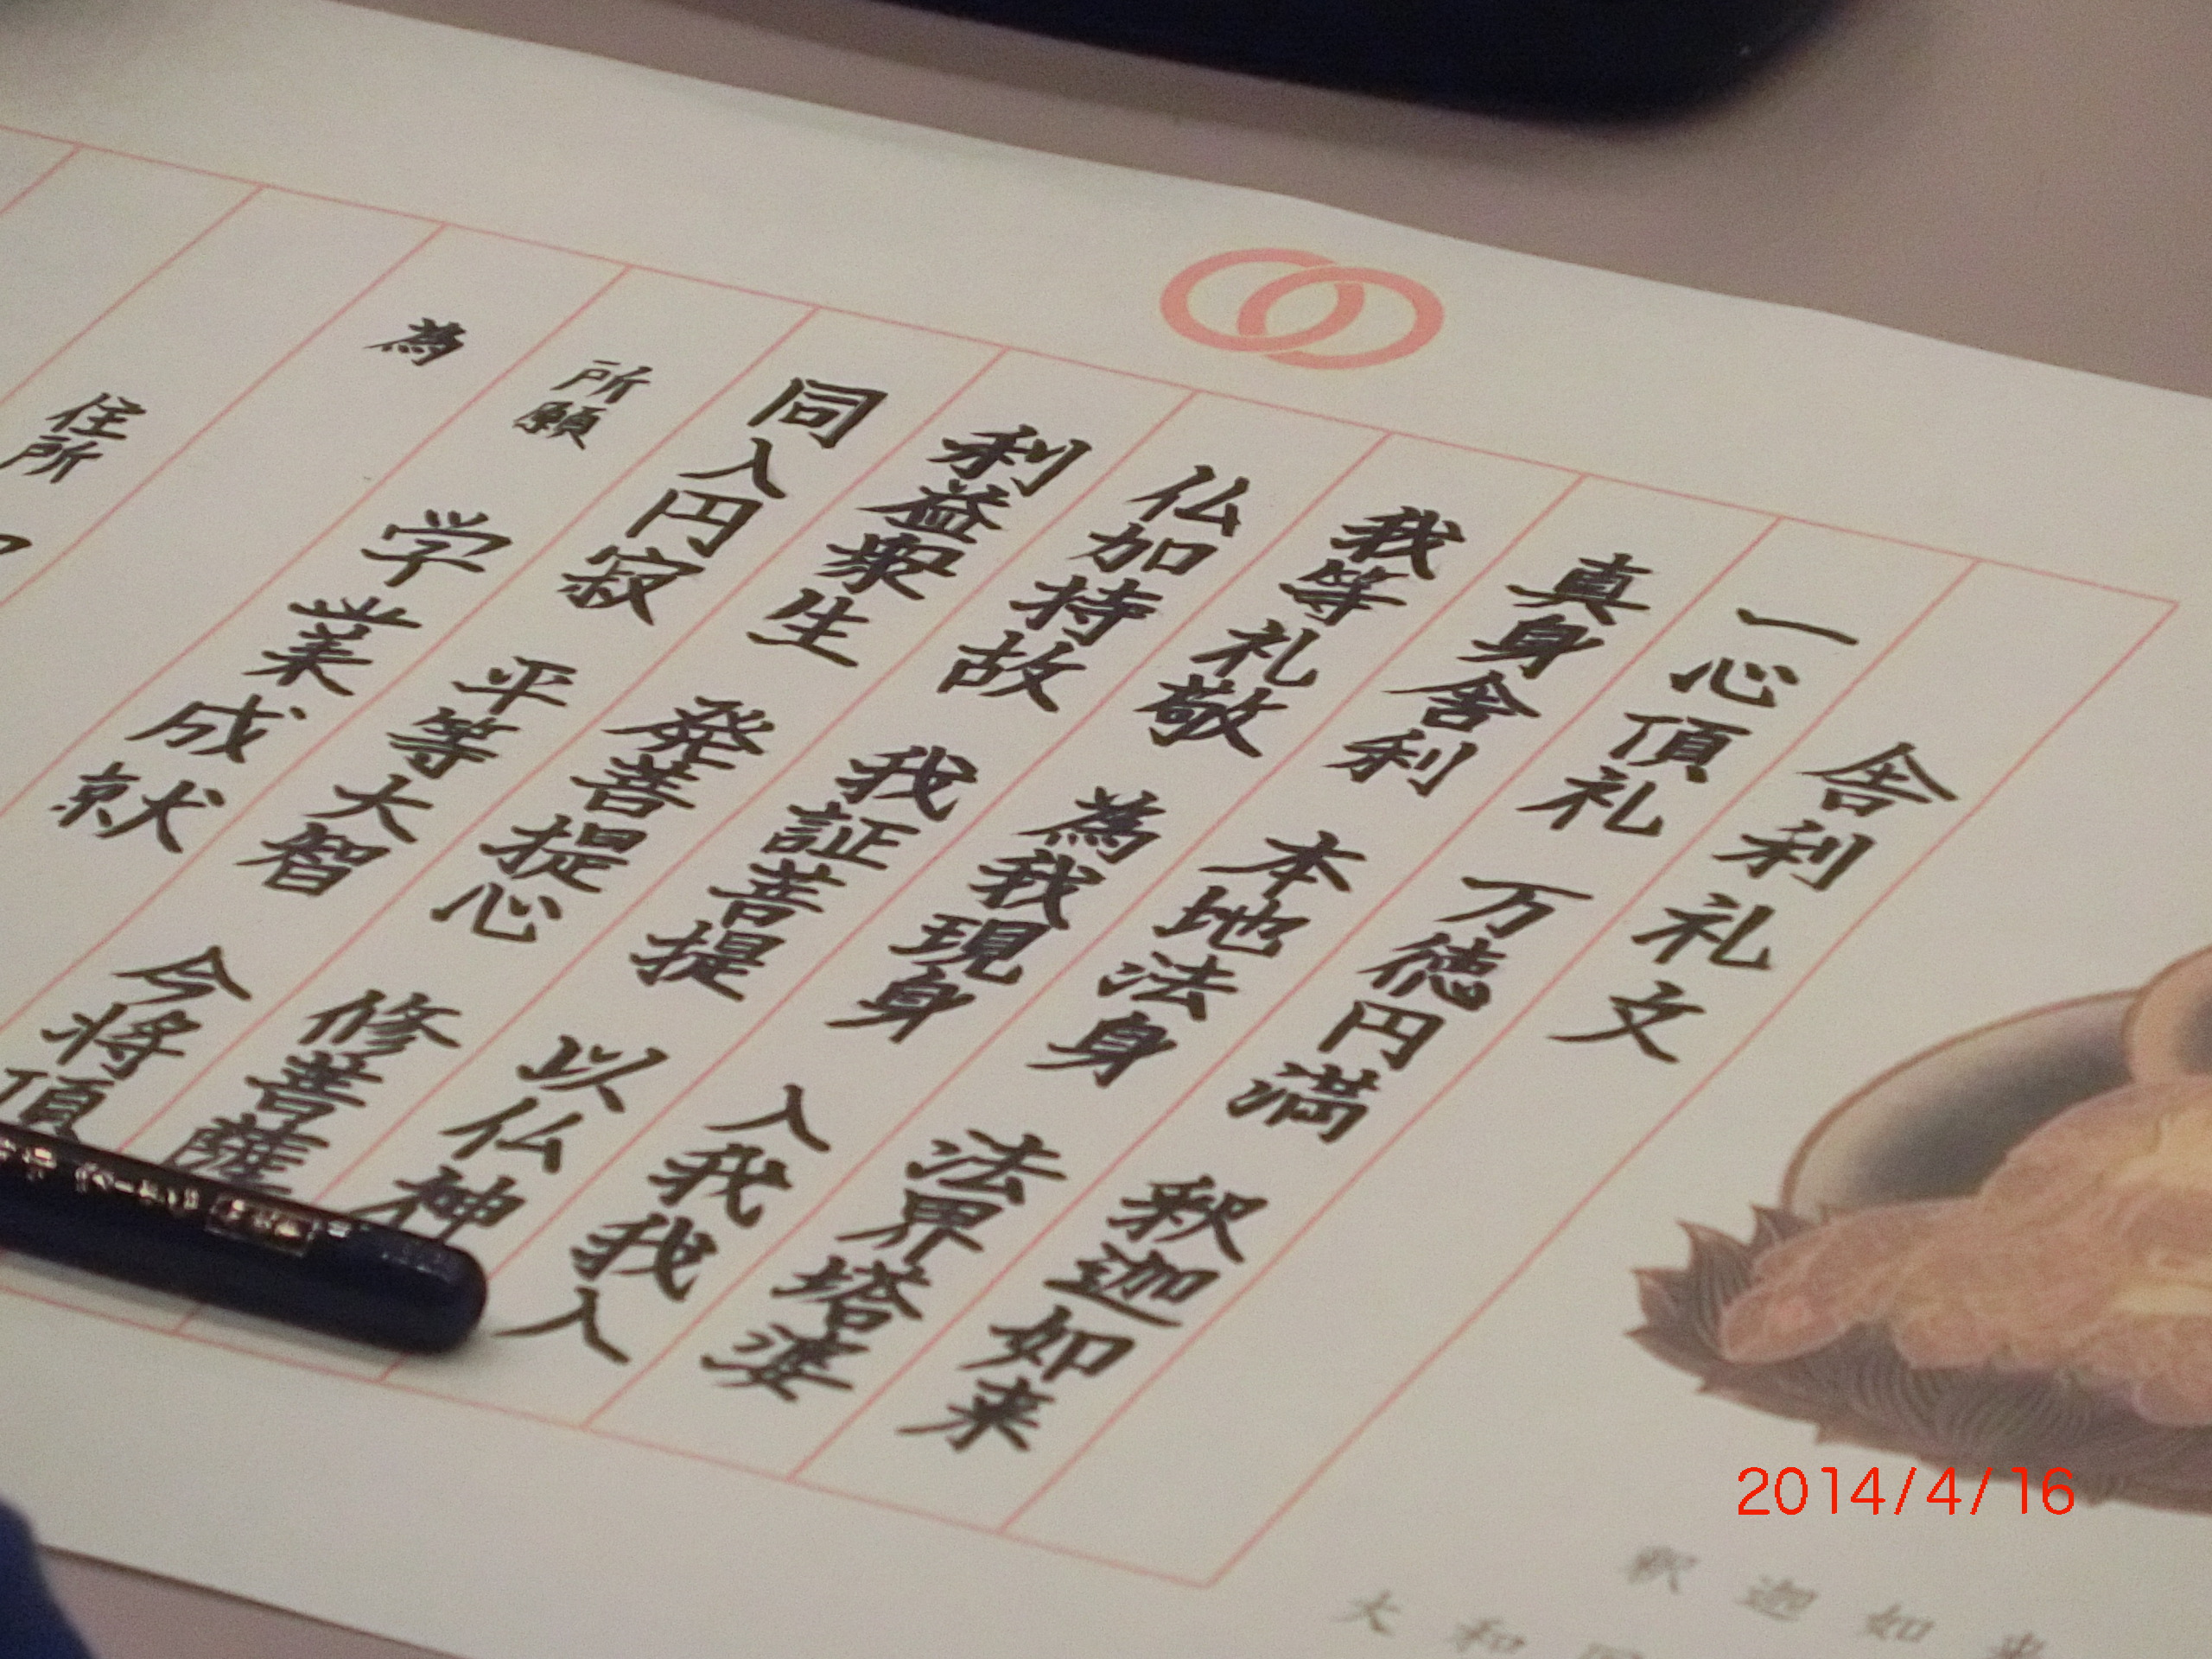 舎利礼文
一心頂礼 万徳円満 釈迦如来
真身舎利 本地法身 法界塔婆
我等礼敬 為我現身 入我我入
仏加持故 我証菩提 以仏神
利益衆生 発菩提心 修菩薩
同入円寂 平等大智 今将頂
所願 学業成就
為
住所
釈迦如来
大和
2014/4/16